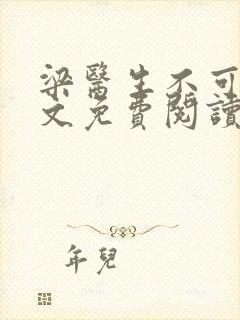 梁醫生不可
文免費閱讀
年兒